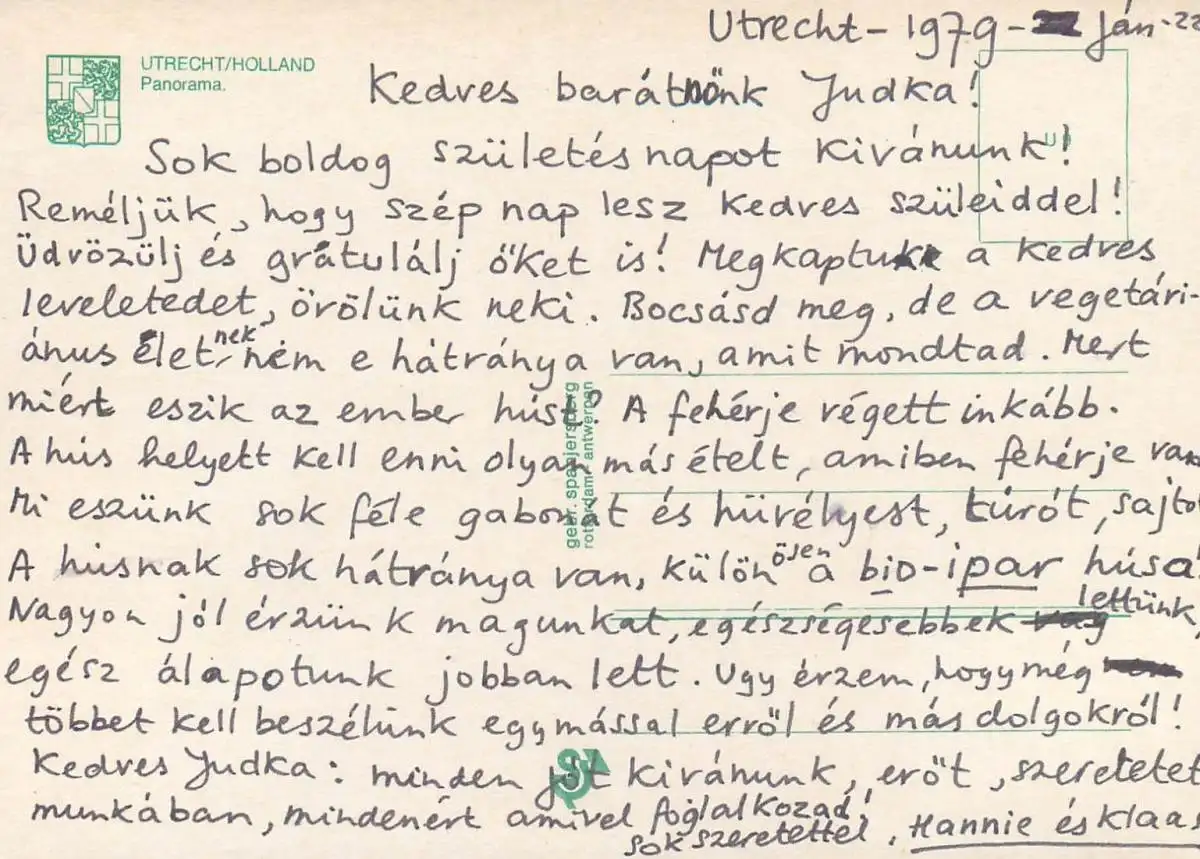 Utrecht - 1979 - Ján. 22
UTRECHT/HOLLAND
Panorama.
Kedves barátnőnk Judka!
Sok boldog születésnapot kivánunk!
Reméljük, hogy szép nap lesz kedves szüleiddel!
Üdvözülj és grátulálj őket is! Megkaptuk a kedves
leveletedet, örölünk neki. Bocsásd meg, de a vegetári-
ánus életnek nem e hátránya van, amit mondtad. Mert
miért eszik az ember húst? A fehérje végett inkább.
A hús helyett kell enni olyan más ételt, amiben fehérje van
Mi eszünk sok féle gabonát és hüvélyest, túrót, sajto
A húsnak sok hátránya van, különösen a bio-ipar húsa
Nagyon jól érzünk magunkat, egészségesebbek lettünk,
egész álapotunk jobban lett. Ugy érzem, hogy még
többet kell beszélünk egymással erről és más dolgokról!
Kedves Judka: minden jót kivánunk, erőt, szeretetet
munkában, mindenért amivel foglalkozad!
sok szeretettel, Hannie és Klaas
gebr. spanjersberg
rotterdam - antwerpen